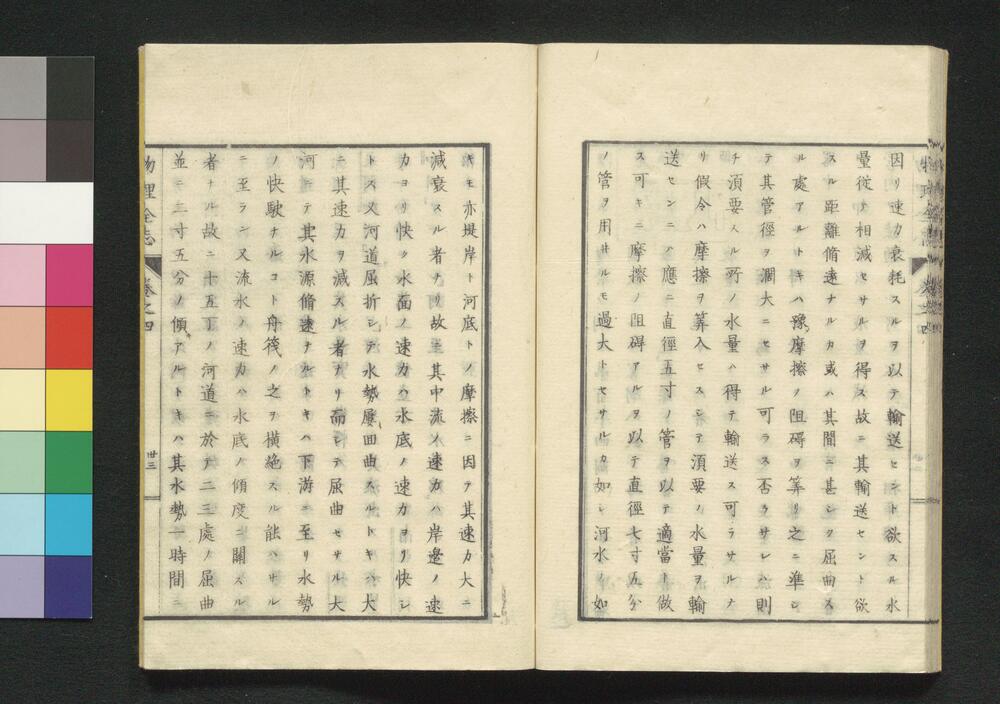 因リ速力衰耗スルヲ以テ輸送セント欲スル水
量從テ相減セサルヲ得ス故ニ其輸送セント欲
スル距離脩遠ナルカ或ハ其間ニ甚シク屈曲ス
ル處アルトキハ豫摩擦ノ阻碍ヲ筭リ之ニ準シ
テ其管徑ヲ濶大ニセサル可ラス否ラサレハ則
チ須要スル所ノ水量ハ得テ輸送ス可ラサルナ
リ假令ハ摩擦ヲ筭入セスシテ須要ノ水量ヲ輸
送センニハ應ニ直徑五寸ノ管ヲ以テ適當ト做
ス可キニ摩擦ノ阻碍アルヲ以テ直徑七寸五分
ノ管ヲ用井ルモ過大トセサルカ如シ河水ノ如
キモ亦堤岸ト河底トノ摩擦ニ因テ其速力大ニ
減衰スル者ナリ故ニ其中流ノ速力ハ岸邊ノ速
力ヨリ快ク水面ノ速力ハ水底ノ速力ヨリ快シ
トス又河道屈折シテ水勢屢回曲スルトキハ大
ニ其速力ヲ減スル者ナリ而シテ屈曲セサル大
河ニテ其水源脩遠ナルトキハ下游ニ至リ水勢
ノ快駛ナルコト舟筏ノ之ヲ横絶スル能ハサル
ニ至ラン又流水ノ速力ハ水底ノ傾度ニ關スル
者ナル故ニ十五丁ノ河道ニ於テ二三處ノ屈曲
並ニ二寸五分ノ傾アルトキハ其水勢一時間ニ
物理全志 卷之四 廿三